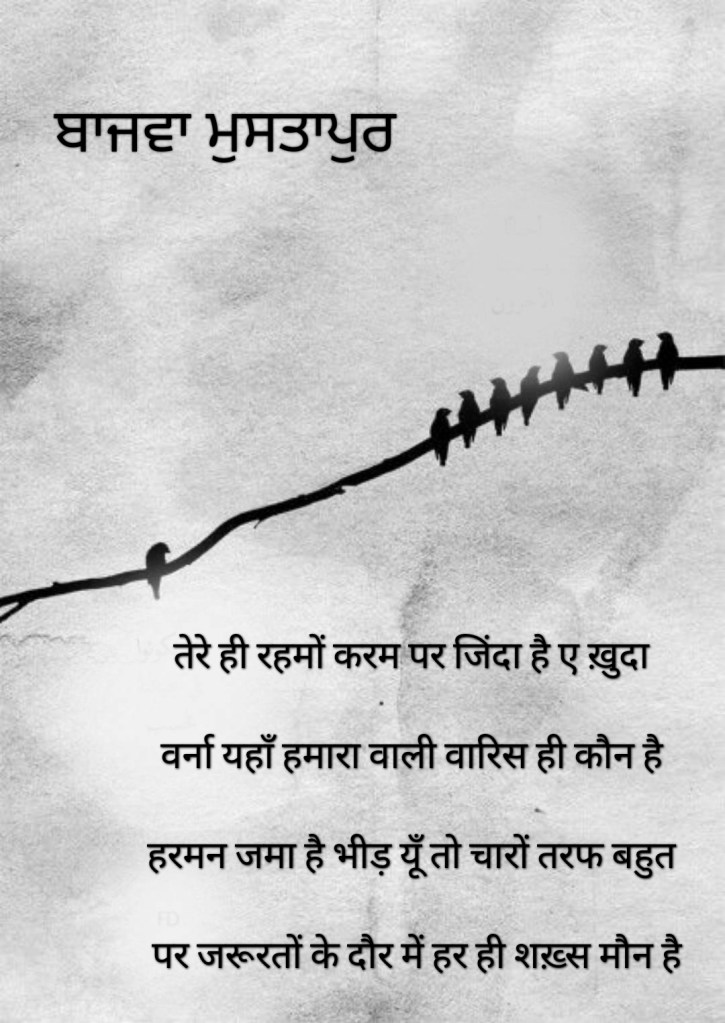 ਬਾਜਵਾ ਮੁਸਤਾਪੁਰ
तेरे ही रहमों करम पर जिंदा है ए ख़ुदा
वर्ना यहाँ हमारा वाली वारिस ही कौन है
हरमन जमा है भीड़ यूँ तो चारों तरफ बहुत
पर जरूरतों के दौर में हर ही शख़्स मौन है